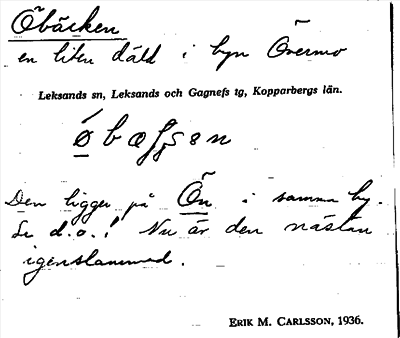 Öbäcken
en liten däld i byn Övermo
Leksands sn, Leksands och Gagnefs tg, Kopparbergs län.
Den ligger på Ön i samma by.
Se d.o.! Nu är den nästan
igenslammad.
ERIK M. CARLSSON, 1936.